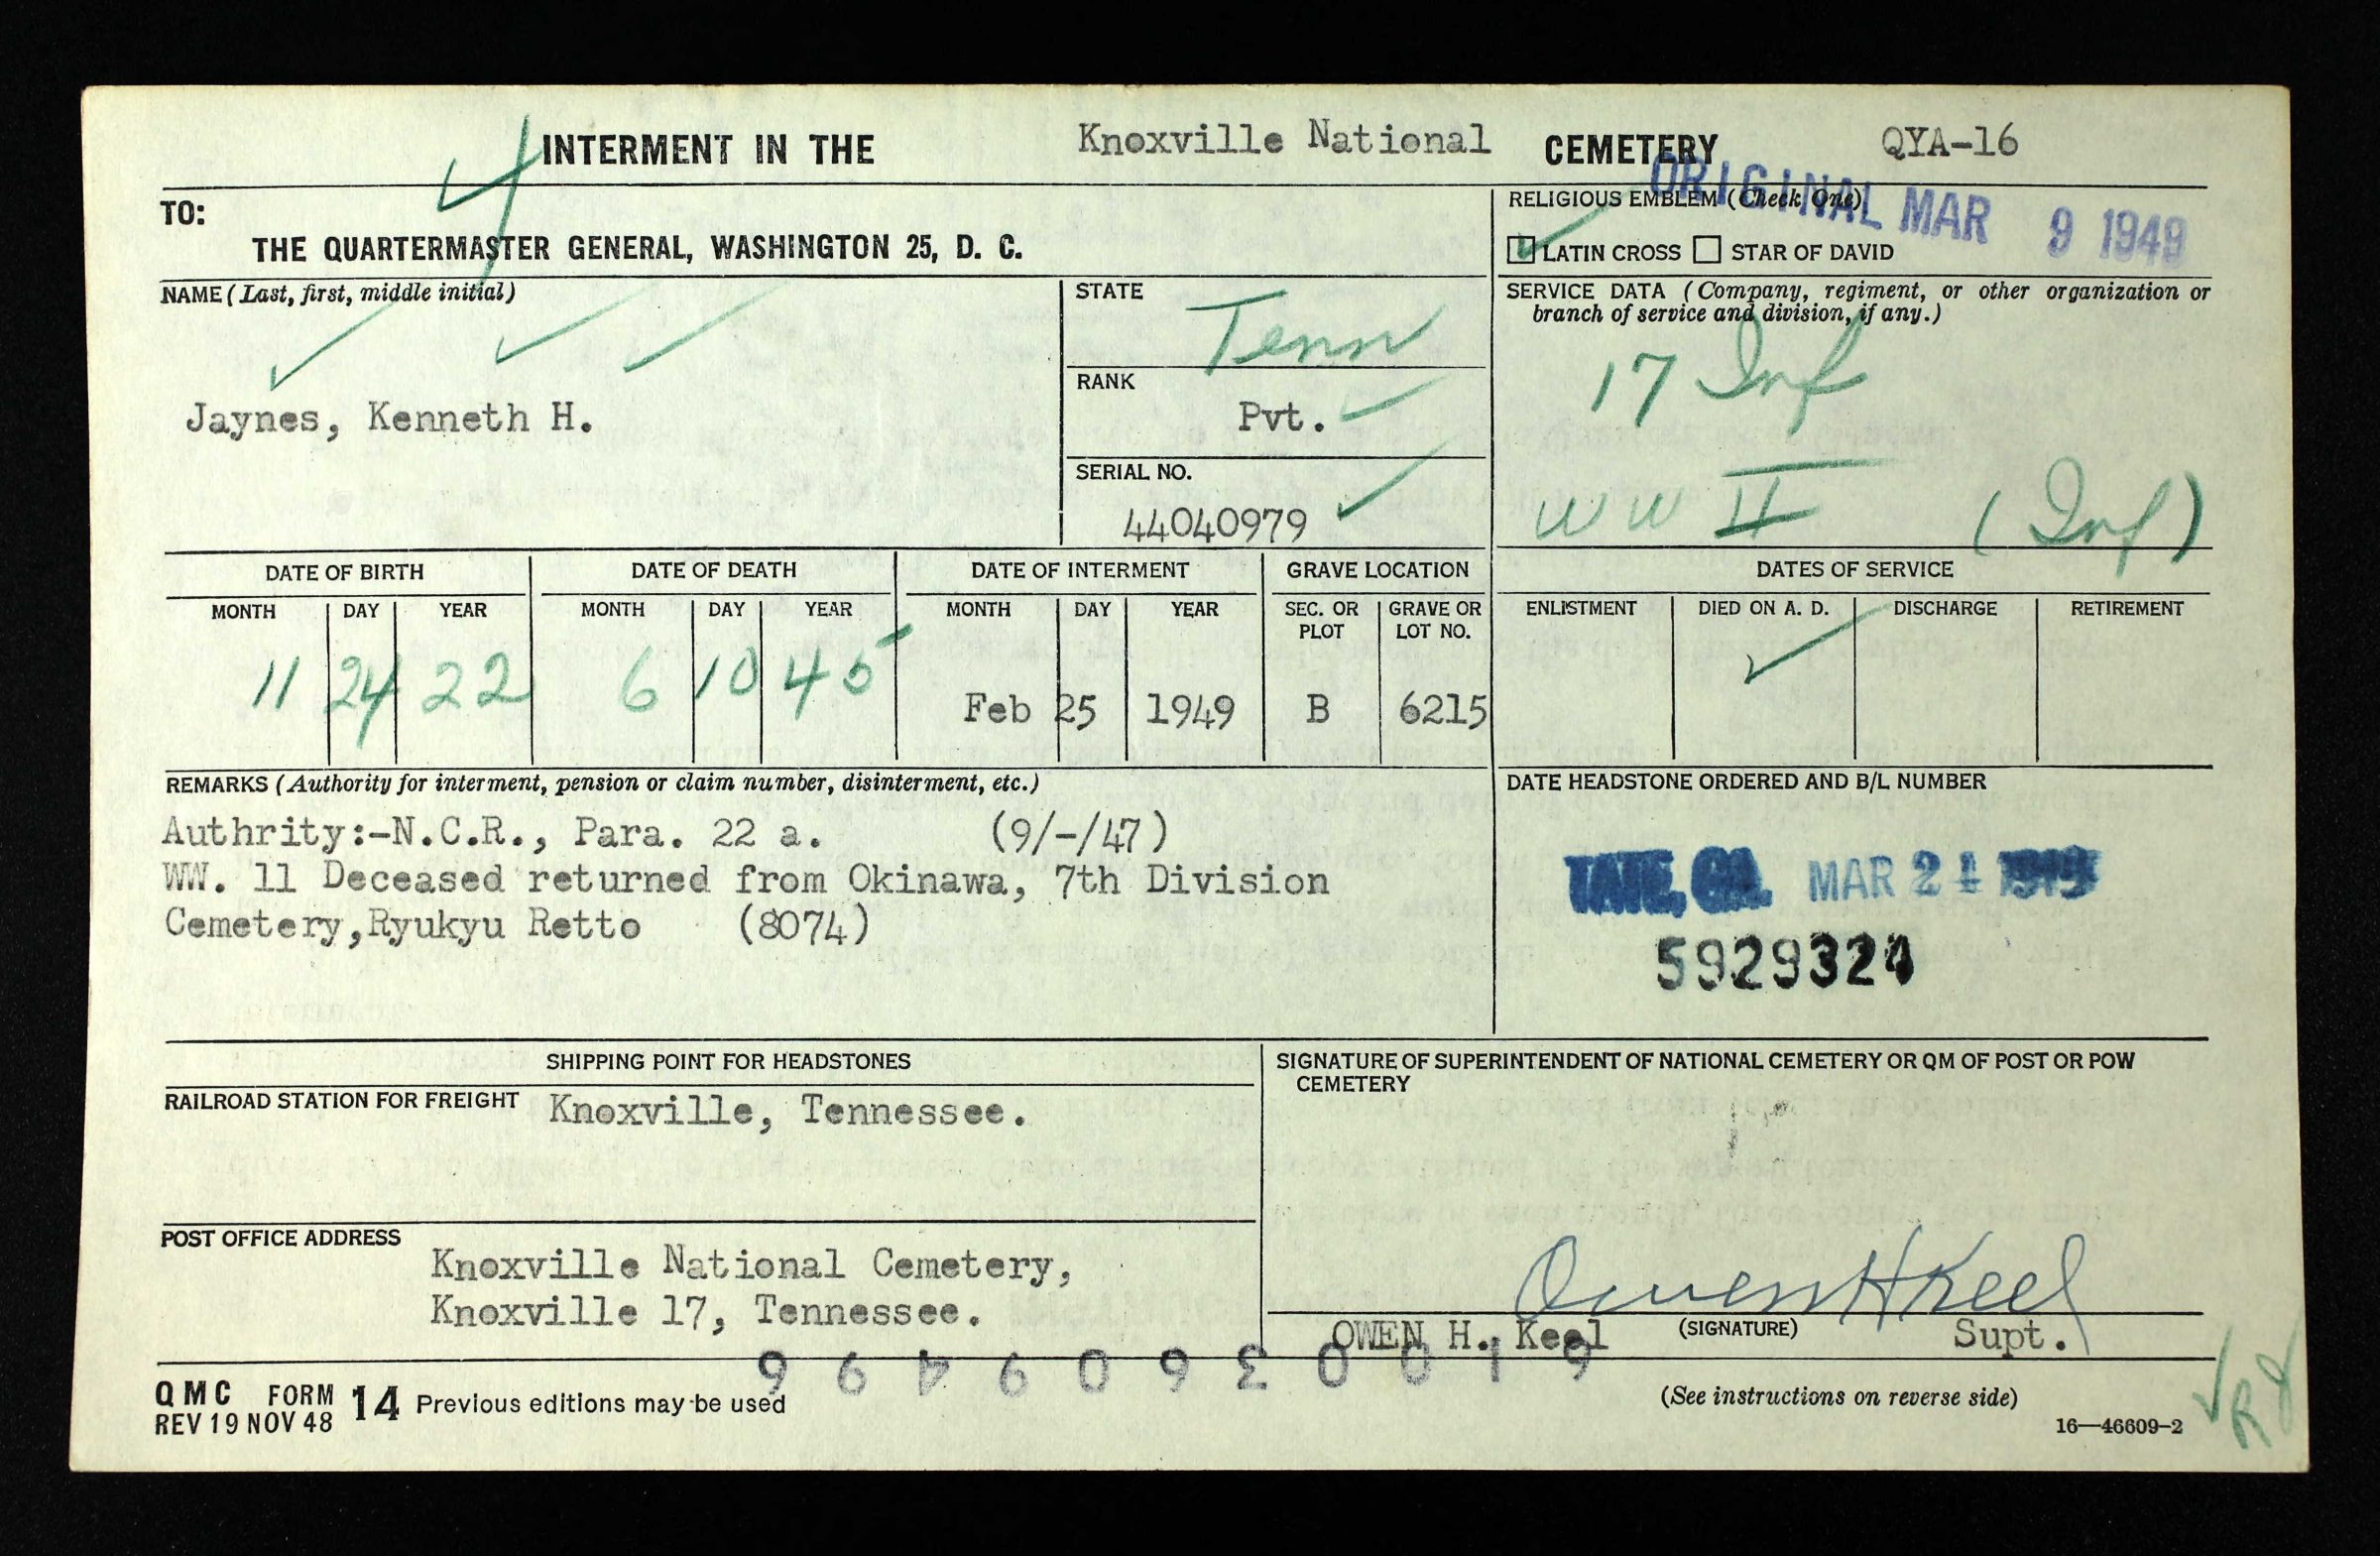 INTERMENT IN THE Knoxville National CEMETERY QYA-16
ORIGINAL MAR 9 1949
TO:
THE QUARTERMASTER GENERAL, WASHINGTON 25, D. C.
RELIGIOUS EMBLEM (Check One)
LATIN CROSS STAR OF DAVID
NAME (Last, first, middle initial)
Jaynes, Kenneth H.
STATE
Tenn
RANK
Pvt.
SERIAL NO.
44040979
SERVICE DATA (Company, regiment, or other organization or
branch of service and division, if any.)
17 Inf
WW II (Inf)
DATE OF BIRTH DATE OF DEATH DATE OF INTERMENT GRAVE LOCATION DATES OF SERVICE
MONTH DAY YEAR MONTH DAY YEAR MONTH DAY YEAR SEC. OR PLOT GRAVE OR LOT NO. ENLISTMENT DIED ON A. D. DISCHARGE RETIREMENT
11 24 22 6 10 45 Feb 25 1949 B 6215
REMARKS (Authority for interment, pension or claim number, disinterment, etc.)
Authrity:-N.C.R., Para. 22 a. (9/-/47)
WW. 11 Deceased returned from Okinawa, 7th Division
Cemetery,Ryukyu Retto (8074)
DATE HEADSTONE ORDERED AND B/L NUMBER
TATE, GA. MAR
SHIPPING POINT FOR HEADSTONES
RAILROAD STATION FOR FREIGHT Knoxville, Tennessee.
POST OFFICE ADDRESS
Knoxville National Cemetery,
Knoxville 17, Tennessee.
SIGNATURE OF SUPERINTENDENT OF NATIONAL CEMETERY OR QM OF POST OR POW
CEMETERY
Owen H Keel
OWEN H. Keel (SIGNATURE) Supt.
QMC FORM 14 Previous editions may be used
REV 19 NOV 48
(See instructions on reverse side)
16—46609-2